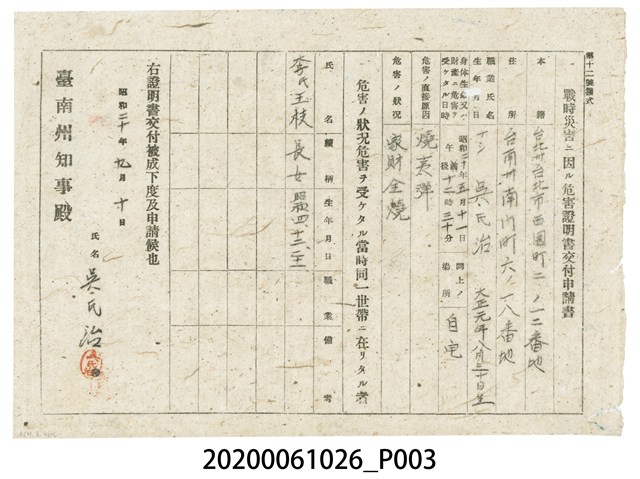 第十二號樣式
一 戰時災害ニ因ル危害證明書交付申請書
本籍 台北州台北市西園町二ノ一二番地
住所 台南州台南市町六ノ一八番地
職業氏名 ナシ 吳氏治
生年月日 大正元年八月三十日生
身体生命又ハ財產ニ危害ヲ受ケタル日時 昭和二十年五月十一日 午前十二時三十分
同上ノ場所 自宅
危害ノ直接原因 燒夷彈
危害ノ狀況 家財全燒
一 危害ノ狀況危害ヲ受ケタル當時同一世帶ニ在リタル者
氏名 續柄 生年月日 職業 備考
李氏玉枝 長女 昭四、十二、
右證明書交付被成下度及申請候也
昭和二十年九月十日
氏名 吳氏治
臺南州知事殿
20200061026_P003